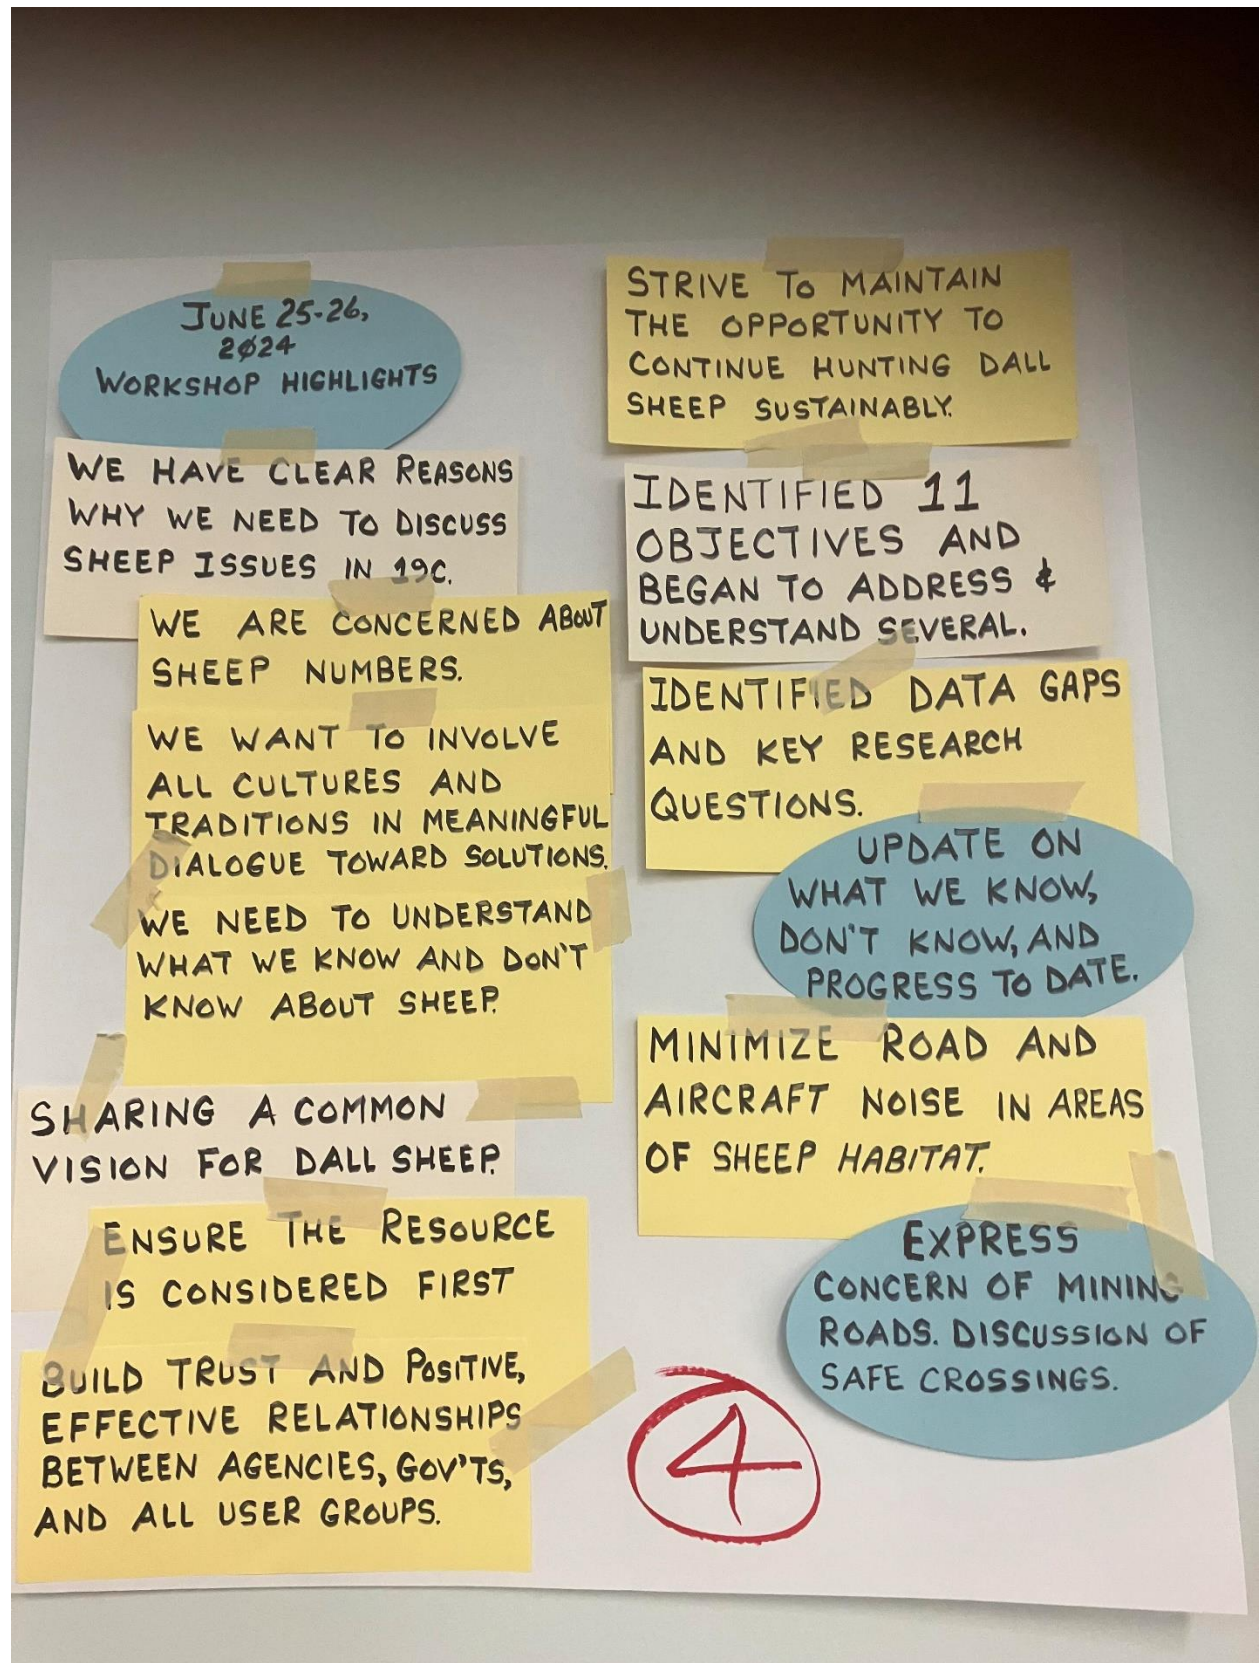 JUNE 25-26,
2024
WORKSHOP HIGHLIGHTS
WE HAVE CLEAR REASONS
WHY WE NEED TO DISCUSS
SHEEP ISSUES IN 19C.
WE ARE CONCERNED ABOUT
SHEEP NUMBERS.
WE WANT TO INVOLVE
ALL CULTURES AND
TRADITIONS IN MEANINGFUL
DIALOGUE TOWARD SOLUTIONS.
WE NEED TO UNDERSTAND
WHAT WE KNOW AND DON'T
KNOW ABOUT SHEEP.
SHARING A COMMON
VISION FOR DALL SHEEP.
ENSURE THE RESOURCE
IS CONSIDERED FIRST
BUILD TRUST AND POSITIVE,
EFFECTIVE RELATIONSHIPS
BETWEEN AGENCIES, GOV'TS,
AND ALL USER GROUPS.
STRIVE TO MAINTAIN
THE OPPORTUNITY TO
CONTINUE HUNTING DALL
SHEEP SUSTAINABLY.
IDENTIFIED 11
OBJECTIVES AND
BEGAN TO ADDRESS &
UNDERSTAND SEVERAL.
IDENTIFIED DATA GAPS
AND KEY RESEARCH
QUESTIONS.
UPDATE ON
WHAT WE KNOW,
DON'T KNOW, AND
PROGRESS TO DATE.
MINIMIZE ROAD AND
AIRCRAFT NOISE IN AREAS
OF SHEEP HABITAT.
EXPRESS
CONCERN OF MINING
ROADS. DISCUSSION OF
SAFE CROSSINGS.
4